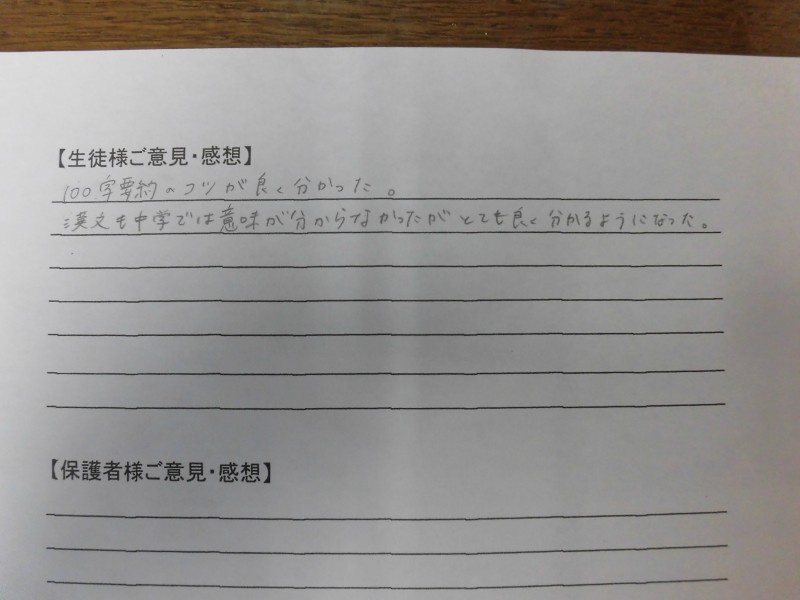 【生徒様ご意見・感想】
100字要約のコツが良く分かった。
漢文も中学では意味が分からなかったがとても良く分かるようになった。
【保護者様ご意見・感想】